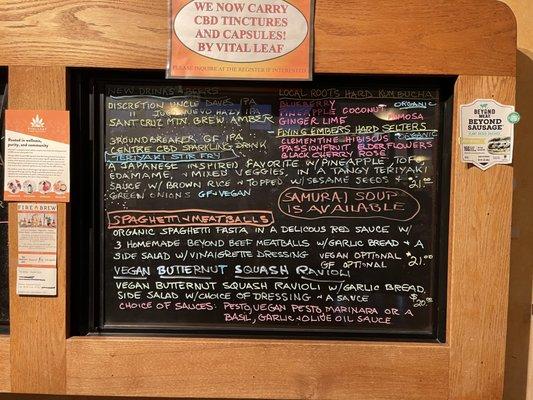 WE NOW CARRY
CBD TINCTURES
AND CAPSULES!
BY VITAL LEAF
PLEASE INQUIRE AT THE REGISTER IF INTERESTED
NEW DRINKS & BEERS
DISCRETION UNCLE DAVES IPA
NUEVO HAZY IPA
SANTA CRUZ MTN BREW AMBER
GROUNDBREAKER GF IPA
CENTRE CBD SPARKLING DRINK
LOCAL ROOTS HARD KOMBUCHA
BLUEBERRY ORGANIC
PINEAPPLE COCONUT
MIMOSA
GINGER LIME
FLYING EMBERS HARD SELTERS
CLEMENTINE HIBISCUS ORGANIC
PASSIONFRUIT ELDERFLOWERS
BLACK CHERRY ROSE
TERIYAKI STIR FRY
A JAPANESE INSPIRED FAVORITE W/ PINEAPPLE, TOFU
EDAMAME, + MIXED VEGGIES, IN A TANGY TERIYAKI
SAUCE, W/ BROWN RICE + TOPPED W/ SESAME SEEDS +
GREEN ONIONS GF + VEGAN $21.00
SAMURAI SOUP
IS AVAILABLE
SPAGHETTI + MEATBALLS
ORGANIC SPAGHETTI PASTA IN A DELICOUS RED SAUCE W/
3 HOMEMADE BEYOND BEEF MEATBALLS W/ GARLIC BREAD + A
SIDE SALAD W/ VINAIGRETTE DRESSING VEGAN OPTIONAL $21.00
GF OPTIONAL
VEGAN BUTTERNUT SQUASH RAVIOLI
VEGAN BUTTERNUT SQUASH RAVIOLI W/ GARLIC BREAD,
SIDE SALAD W/ CHOICE OF DRESSING + A SAUCE $20.00
CHOICE OF SAUCES: PESTO, VEGAN PESTO, MARINARA OR A
BASIL, GARLIC + OLIVE OIL SAUCE
FIRE BREW
BEYOND MEAT
BEYOND
SAUSAGE